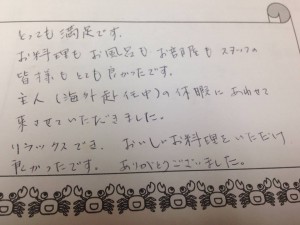 とっても満足です。
お料理もお風呂もお部屋もスタッフの
皆様もとても良かったです。
主人(海外赴任中)の休暇にあわせて
来させていただきました。
リラックスでき、おいしいお料理をいただけ
良かったです。 ありがとうございました。